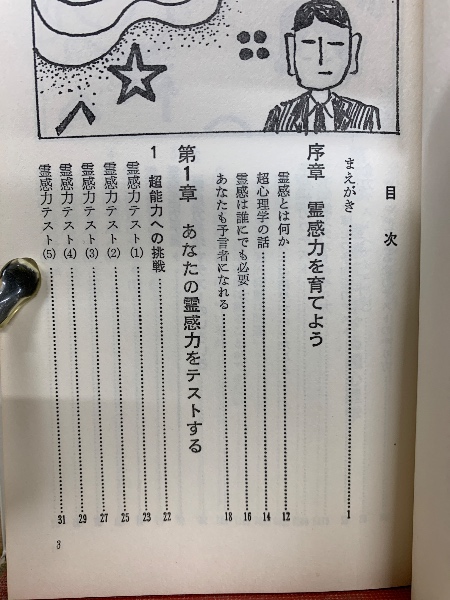 目次
まえがき……1
序章 霊感力を育てよう
霊感とは何か……12
超心理学の話……14
霊感は誰にでも必要……16
あなたも予言者になれる……18
第1章 あなたの霊感力をテストする
1 超能力への挑戦……22
霊感力テスト(1)……23
霊感力テスト(2)……25
霊感力テスト(3)……27
霊感力テスト(4)……29
霊感力テスト(5)……31
3